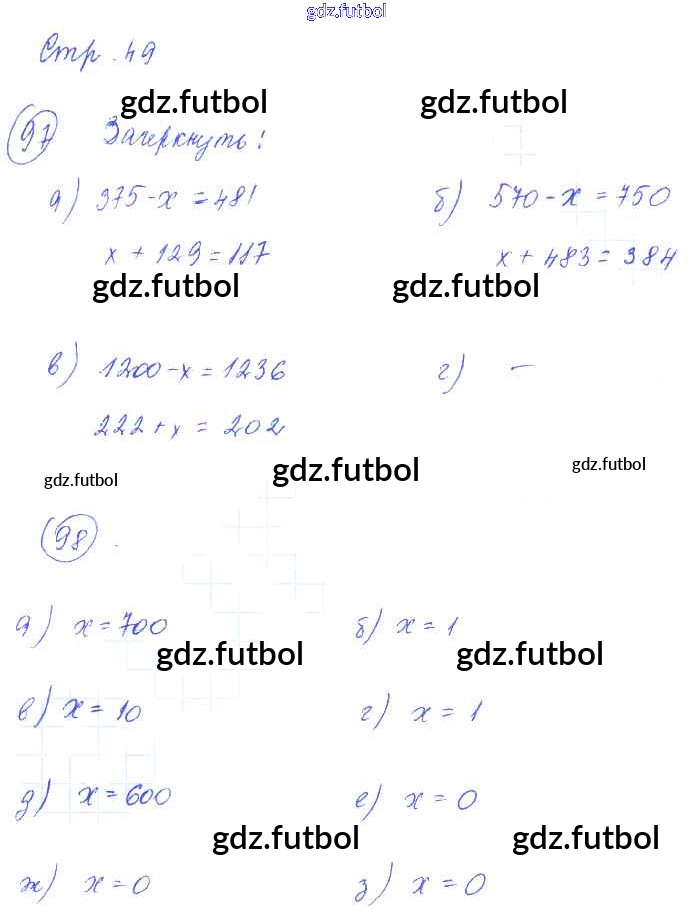 gdz.futbol
Стр. 49
gdz.futbol gdz.futbol
97 Зачеркнуть!
а) 375-x = 481 б) 570-x = 750
x + 129 = 117 x + 483 = 384
gdz.futbol gdz.futbol
в) 1200-x = 1236 г) —
222 + x = 202
gdz.futbol gdz.futbol gdz.futbol
98.
а) x = 700 б) x = 1
gdz.futbol gdz.futbol
в) x = 10 г) x = 1
д) x = 600 е) x = 0
gdz.futbol gdz.futbol
ж) x = 0 з) x = 0